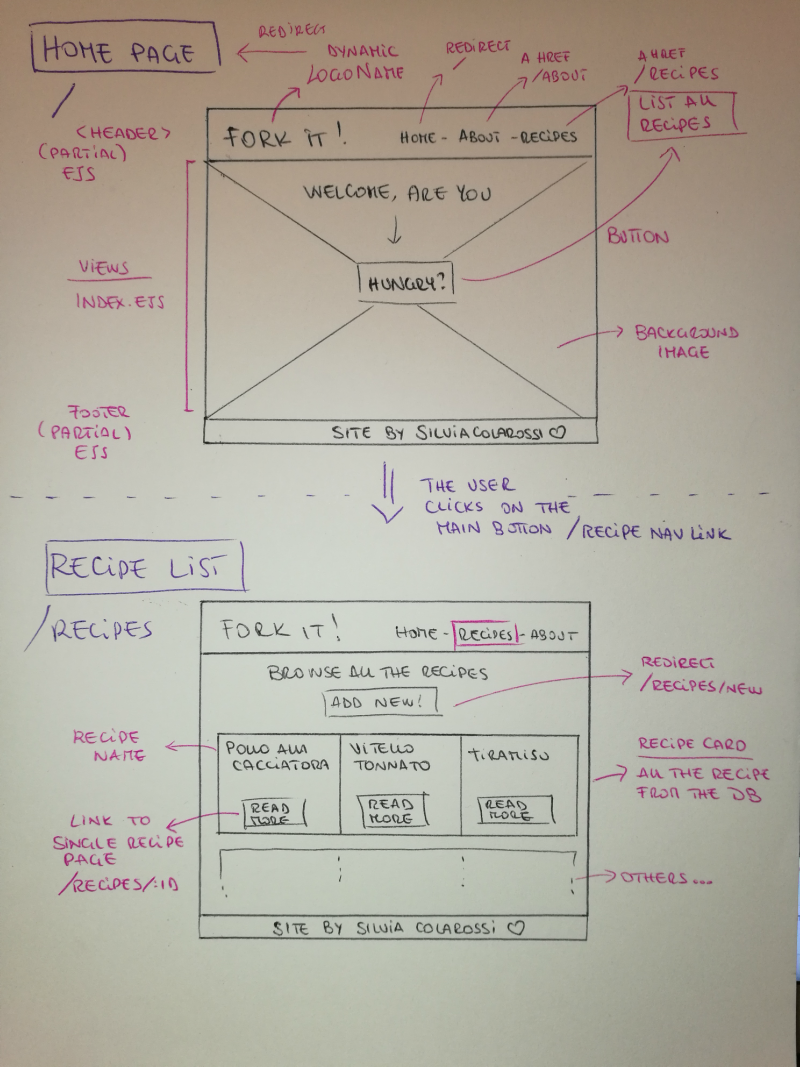 HOME PAGE
/
REDIRECT
DYNAMIC
LOGO NAME
REDIRECT
/
A HREF
/ABOUT
A HREF
/RECIPES
LIST ALL
RECIPES
<HEADER>
(PARTIAL)
EJS
FORK IT!
HOME - ABOUT - RECIPES
WELCOME, ARE YOU
HUNGRY?
BUTTON
VIEWS
INDEX.EJS
BACKGROUND
IMAGE
FOOTER
(PARTIAL)
EJS
SITE BY SILVIA COLAROSSI ♡
THE USER
CLICKS ON THE
MAIN BUTTON / RECIPE NAV LINK
RECIPE LIST
/RECIPES
FORK IT!
HOME - RECIPES - ABOUT
BROWSE ALL THE RECIPES
ADD NEW!
REDIRECT
/RECIPES/NEW
RECIPE
NAME
POLLO ALLA
CACCIATORA
READ
MORE
VITELLO
TONNATO
READ
MORE
TIRAMISU
READ
MORE
RECIPE CARD
ALL THE RECIPE
FROM THE DB
LINK TO
SINGLE RECIPE
PAGE
/RECIPES/:ID
OTHERS...
SITE BY SILVIA COLAROSSI ♡